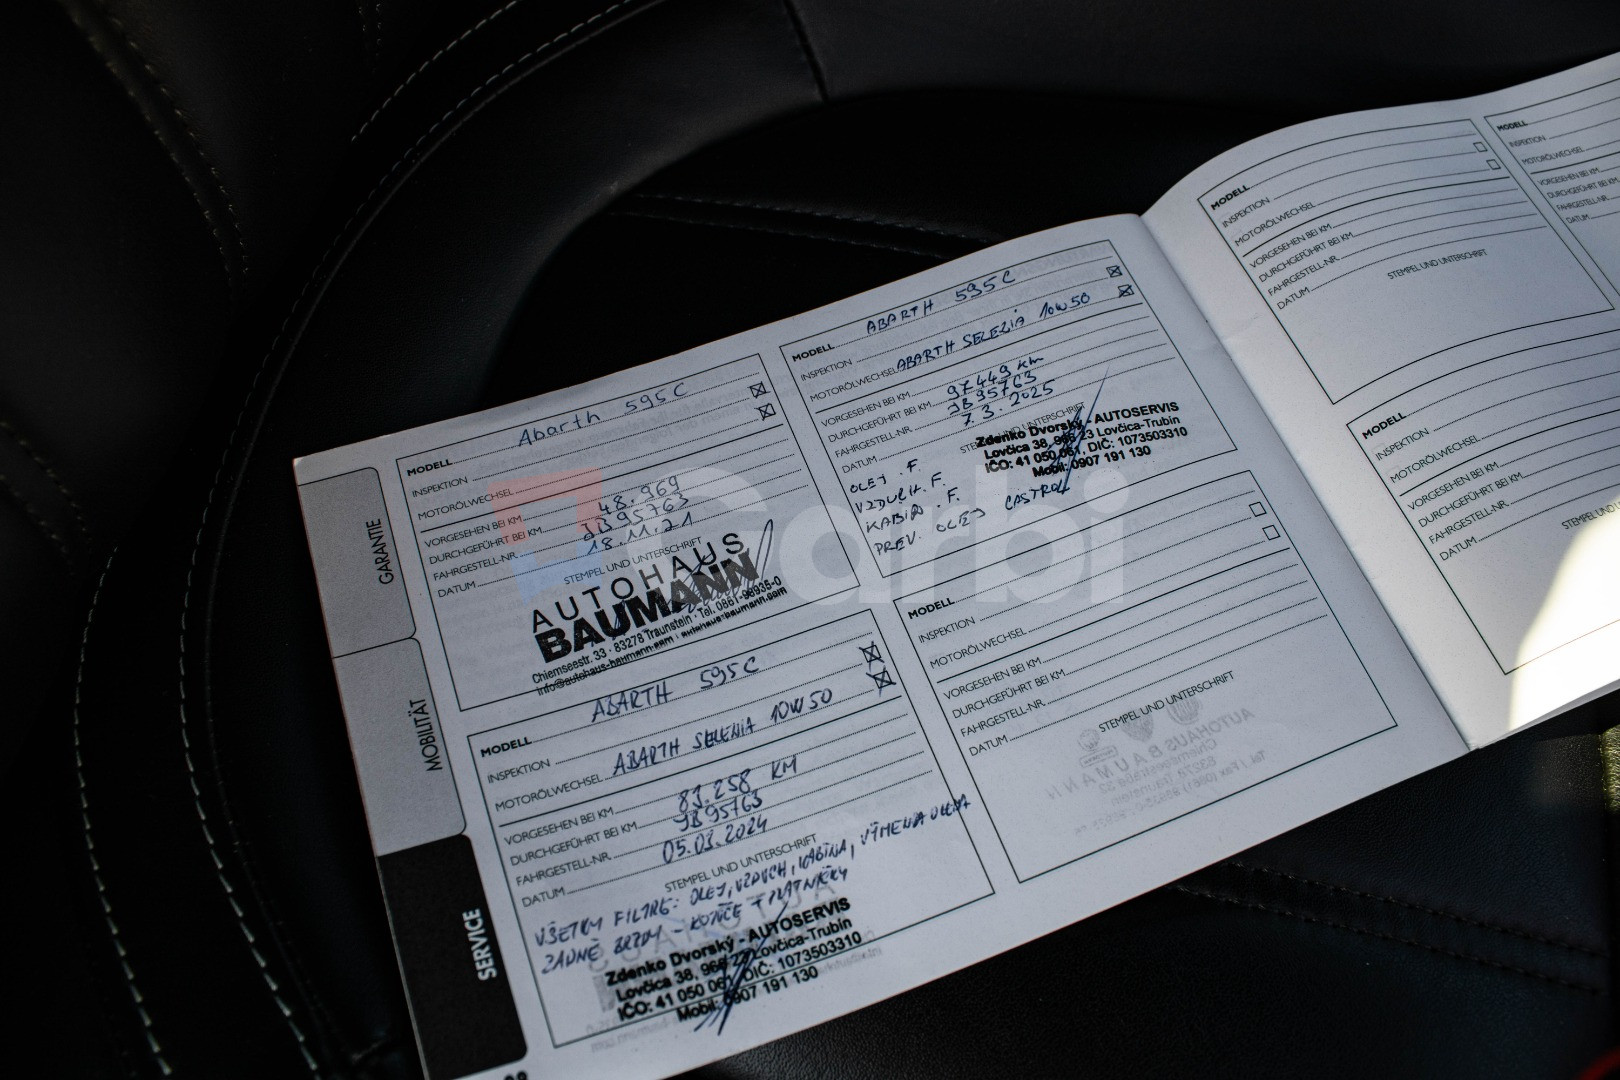 GARANTIE
MOBILITÄT
SERVICE
MODELL Abarth 595C
INSPEKTION
MOTORÖLWECHSEL
VORGESEHEN BEI KM
DURCHGEFÜHRT BEI KM 48.969
FAHRGESTELL-NR. JB95763
DATUM 18.11.21
STEMPEL UND UNTERSCHRIFT
AUTOHAUS
BAUMANN
Chiemseestr. 33 · 83278 Traunstein · Tel. 0861-98935-0
info@autohaus-baumann.com | autohaus-baumann.com
MODELL ABARTH 595C
INSPEKTION
MOTORÖLWECHSEL ABARTH SELENIA 10W50
VORGESEHEN BEI KM
DURCHGEFÜHRT BEI KM 83.258 KM
FAHRGESTELL-NR. JB95763
DATUM 05.03.2024
STEMPEL UND UNTERSCHRIFT
VŠETKY FILTRE: OLEJ, VZDUCH, KABÍNA, VÝMENA OLEJA
ZADNÉ BRZDY - KOTÚČE + PLATNIČKY
Zdenko Dvorský - AUTOSERVIS
Lovčica 38, 966 23 Lovčica-Trubín
IČO: 41 050 061, DIČ: 1073503310
Mobil: 0907 191 130
MODELL ABARTH 595C
INSPEKTION
MOTORÖLWECHSEL ABARTH SELEZIA 10W50
VORGESEHEN BEI KM
DURCHGEFÜHRT BEI KM 97449 km
FAHRGESTELL-NR. JB95763
DATUM 7.3.2025
STEMPEL UND UNTERSCHRIFT
Zdenko Dvorský - AUTOSERVIS
Lovčica 38, 966 23 Lovčica-Trubín
IČO: 41 050 061, DIČ: 1073503310
Mobil: 0907 191 130
OLEJ F.
VZDUCH. F.
KABÍN. F.
PREV. OLEJ CASTROL
MODELL
INSPEKTION
MOTORÖLWECHSEL
VORGESEHEN BEI KM
DURCHGEFÜHRT BEI KM
FAHRGESTELL-NR.
DATUM
STEMPEL UND UNTERSCHRIFT
MODELL
INSPEKTION
MOTORÖLWECHSEL
VORGESEHEN BEI KM
DURCHGEFÜHRT BEI KM
FAHRGESTELL-NR.
DATUM
STEMPEL UND UNTERSCHRIFT
MODELL
INSPEKTION
MOTORÖLWECHSEL
VORGESEHEN BEI KM
DURCHGEFÜHRT BEI KM
FAHRGESTELL-NR.
DATUM
STEMPEL UND
MODELL
INSPEKTION
MOTORÖLWECHSEL
VORGESEHEN BEI KM
DURCHGEFÜHRT BEI KM
FAHRGESTELL-NR.
DATUM
Carbi